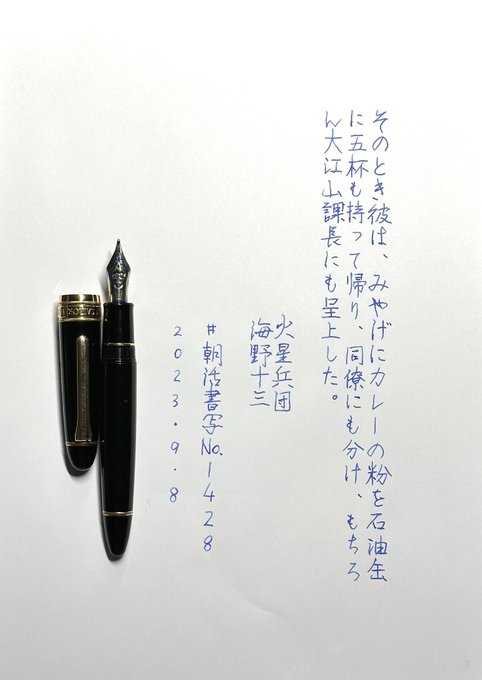 そのとき彼は、みやげにカレーの粉を石油缶
に五杯も持って帰り、同僚にも分け、もちろ
ん大江山課長にも呈上した。
火星兵団
海野十三
#朝活書写No.1428
2023.9.8